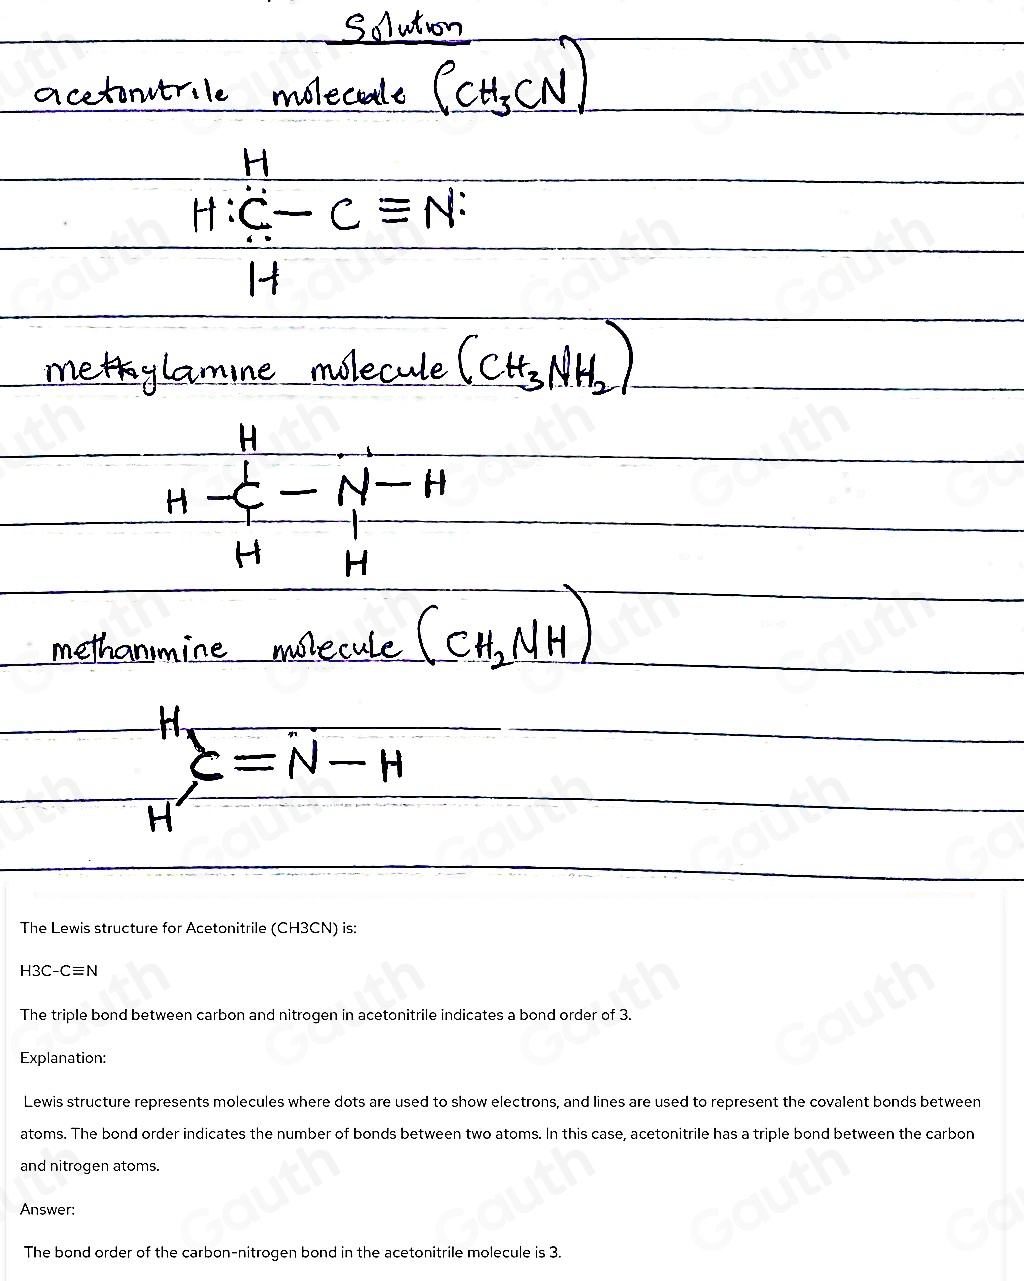 Solution
acetonitrile molecule (CH₃CN)
H
H:C̈— C ≡ N:
H
methylamine molecule (CH₃NH₂)
H
H — C — N̈ — H
H H
methanimine molecule (CH₂NH)
H
C = N̈ — H
H
The Lewis structure for Acetonitrile (CH3CN) is:
H3C-C≡N
The triple bond between carbon and nitrogen in acetonitrile indicates a bond order of 3.
Explanation:
Lewis structure represents molecules where dots are used to show electrons, and lines are used to represent the covalent bonds between
atoms. The bond order indicates the number of bonds between two atoms. In this case, acetonitrile has a triple bond between the carbon
and nitrogen atoms.
Answer:
The bond order of the carbon-nitrogen bond in the acetonitrile molecule is 3.